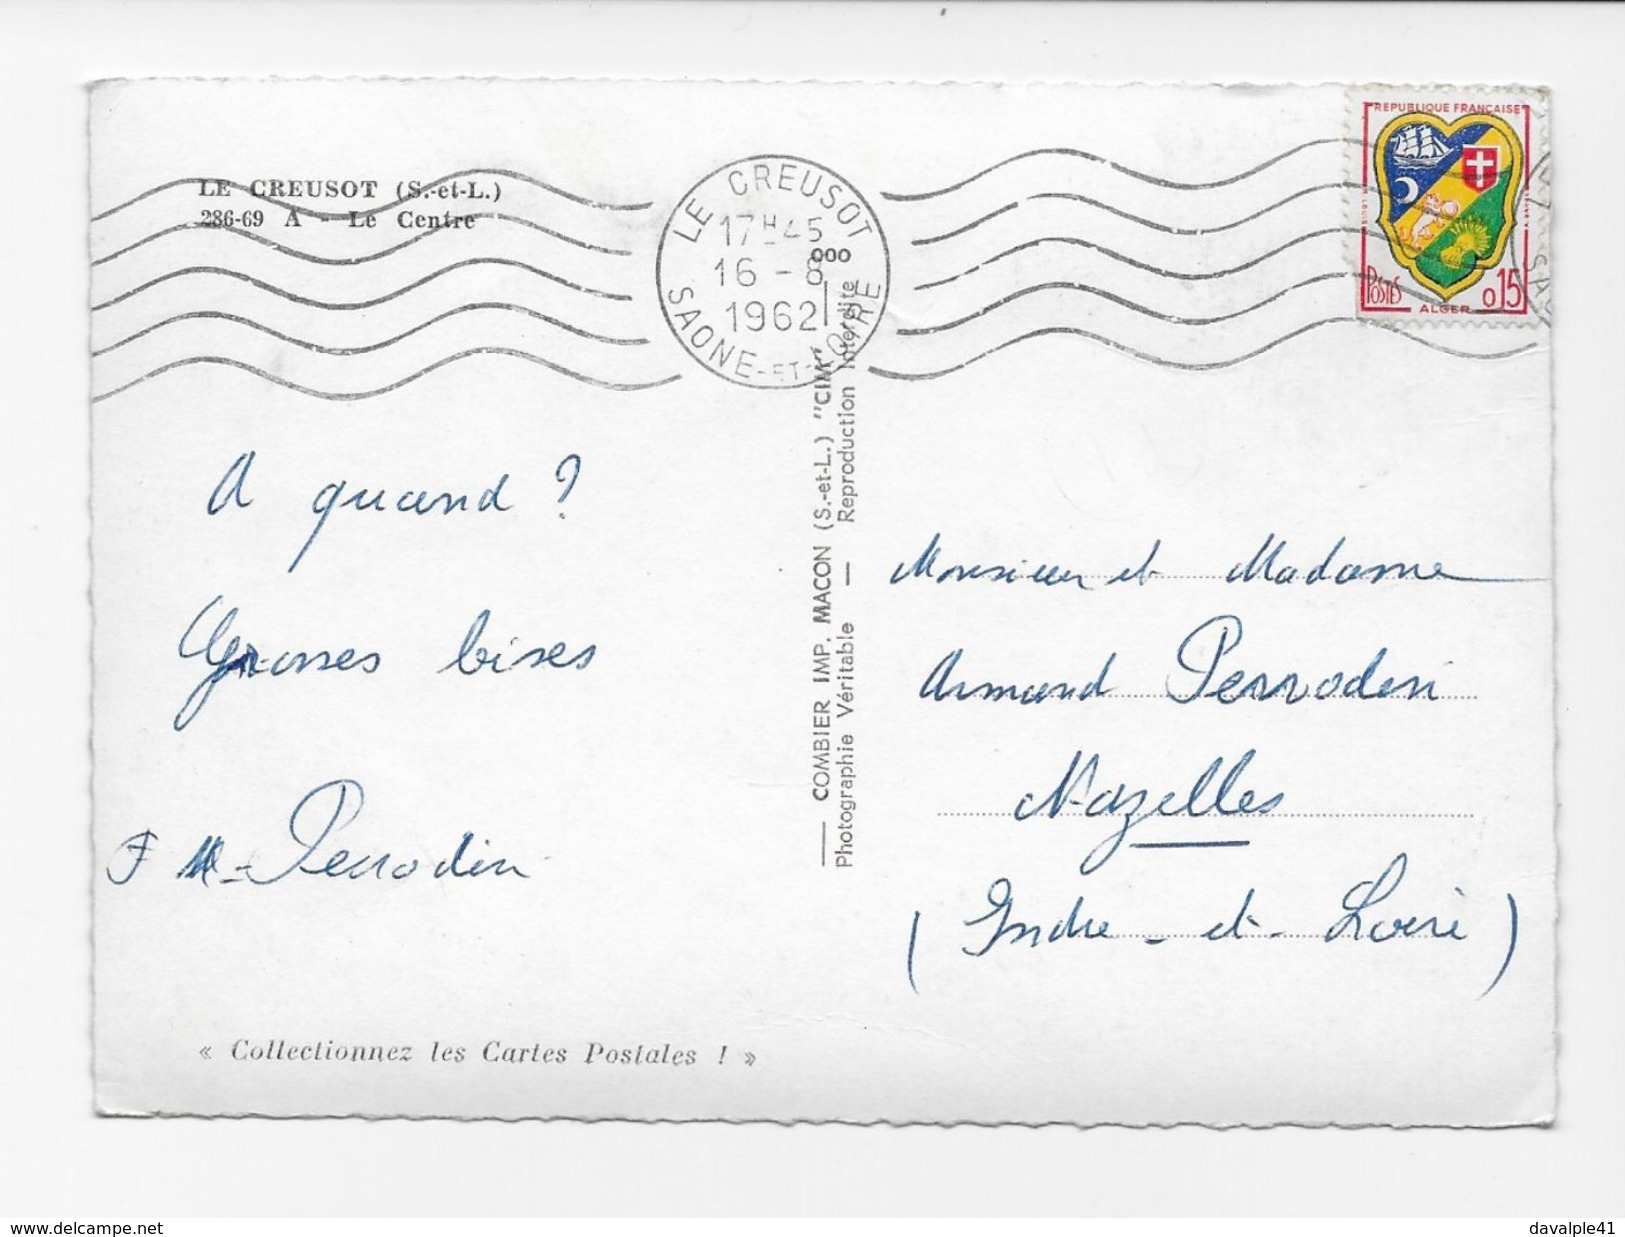 LE CREUSOT (S.-et-L.)
286-69 A - Le Centre
LE CREUSOT
17H45
16 - 8
1962
SAONE-ET-LOIRE
REPUBLIQUE FRANÇAISE
POSTES
0,15
ALGER
A quand ?
Grosses bises
Perrodin
« Collectionnez les Cartes Postales ! »
COMBIER IMP. MACON (S.-et-L.) "CIM"
Photographie Véritable — Reproduction Interdite
Monsieur et Madame
Armand Perrodin
Nazelles
(Indre-et-Loire)
www.delcampe.net
davalple41